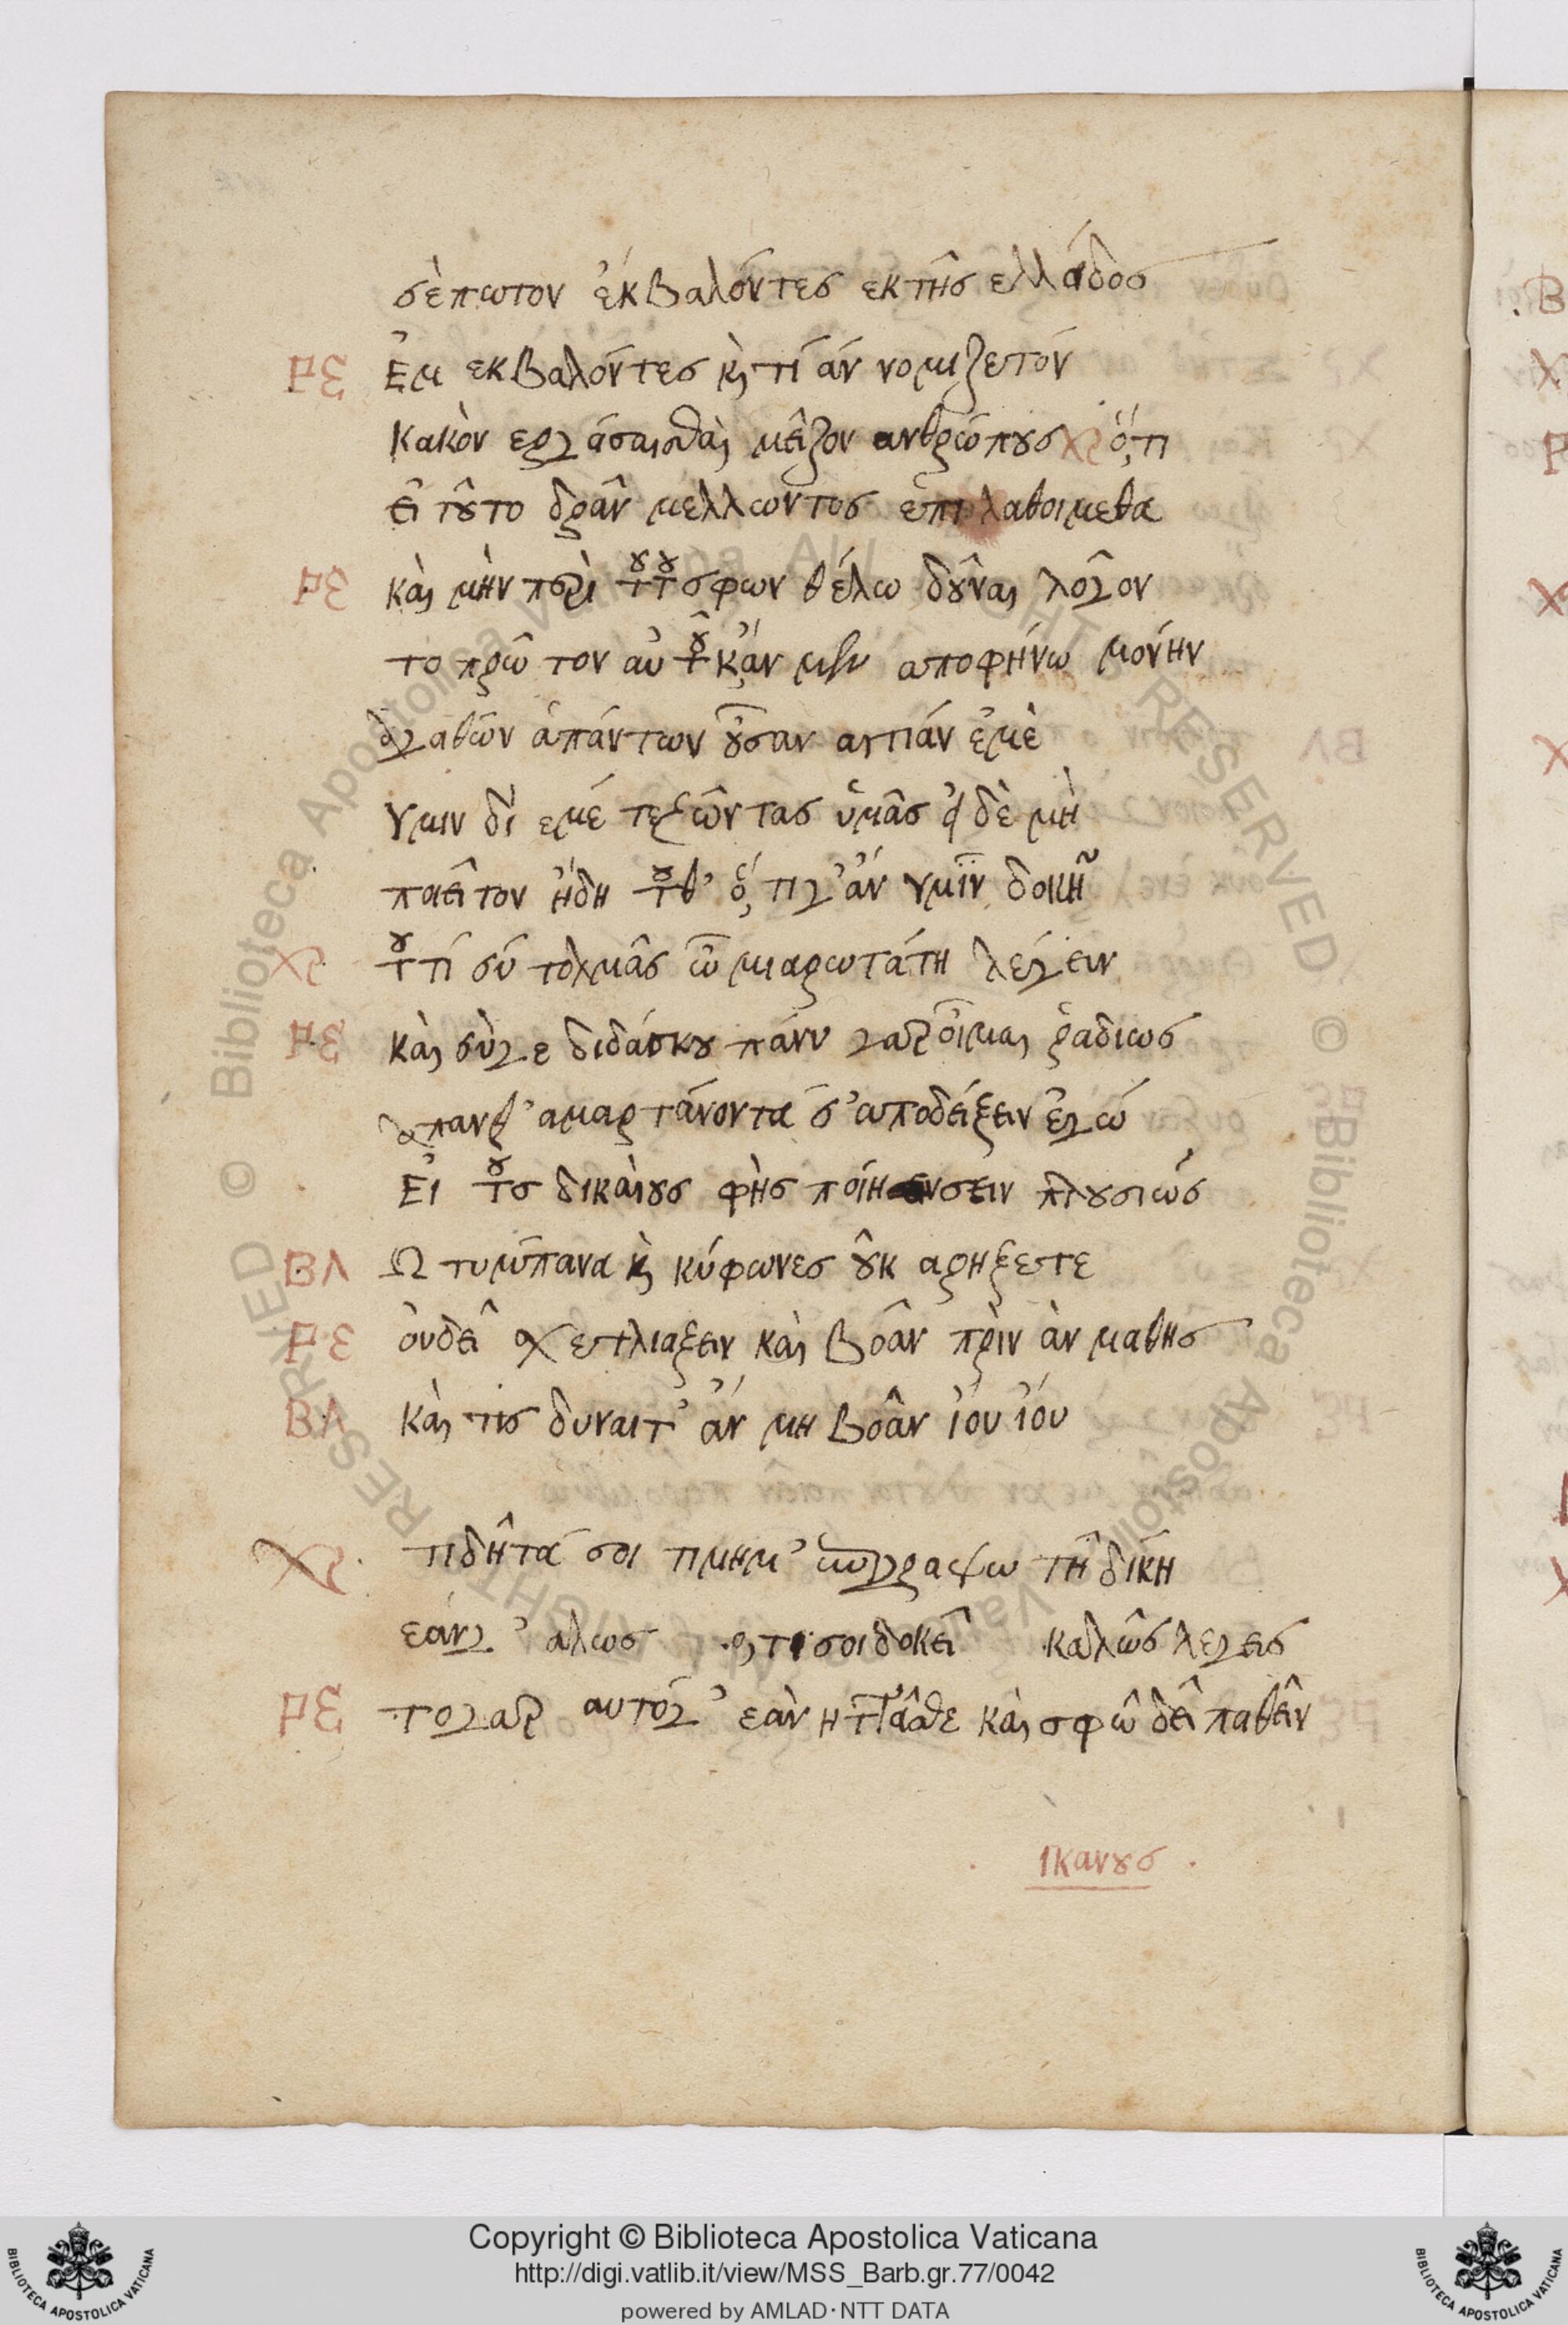 σὲ πωτον ἐκβαλόντες εκ τῆς ελλάδος
ΠΕ Ἐμ εκβαλόντες κὶ τί ἀν νομιζετόν
κακὸν εργάσασθαι μεῖζον ανθρώπους Χρ ὅ,τι
εἰ τοῦτο δρᾶν μελλωντος ἐπιλαθοιμεθα
ΠΕ καὶ μὴν περὶ τούτου σφων θέλω δοῦναι λόγον
το πρῶτον αὐτοῦ κἀν μεν αποφήνω μόνην
ἀγαθῶν ἁπάντων οὖσαν αιτιάν ἐμὲ
Υμιν δι εμέ τε ζῶντας ὑμᾶς εἰ δὲ μὴ
παεῖτον ἤδη τοῦθ' ὅ,τι γ' ἀν υμῖν δοκῆ
Χρ τουτί σύ τολμᾶς ὦ μιαρωτάτη λέγειν
ΠΕ καὶ σύγε διδάσκου πάνυ γαρ οἶμαι ῥαδιως
ἁπανθ' αμαρτάνοντά σ' αποδείξειν ἐγώ
Εἰ τους δικαίους φὴς ποιήσειν πλουσιώς
ΒΛ Ω τυμπανα κὶ κύφωνες οὐκ αρηξετε
ΠΕ οὐ δεῖ σχετλιαζειν καὶ βοᾶν πρὶν ἀν μαθης
ΒΛ καὶ τίς δυναιτ' ἀν μη βοᾶν ἰού ἰού
Χρ τι δῆτά σοι τιμημ' επιγραψω τῆ δίκη
εάν γ' αλως ὅ,τι σοι δοκεῖ καλῶς λεγεις
ΠΕ το γαρ αυτόγ' εὰν ηττᾶσθε καὶ σφῶ δεῖ παθεῖν
Ικανους
Copyright © Biblioteca Apostolica Vaticana
http://digi.vatlib.it/view/MSS_Barb.gr.77/0042
powered by AMLAD·NTT DATA